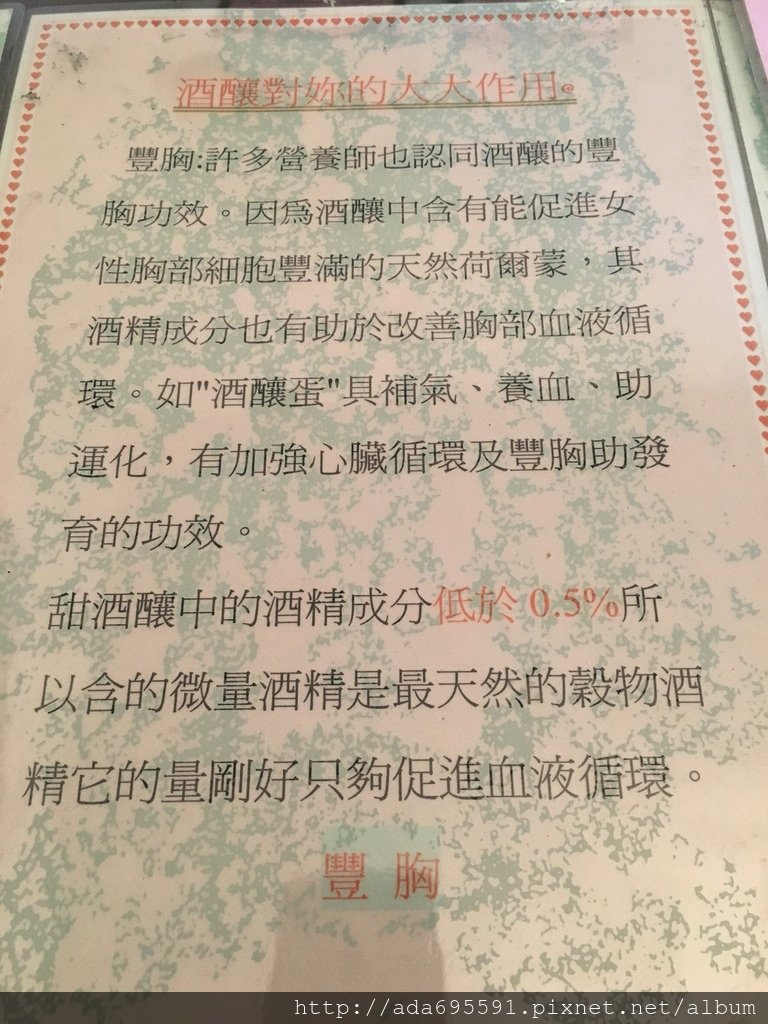 酒釀對妳的大大作用。
豐胸:許多營養師也認同酒釀的豐
胸功效。因爲酒釀中含有能促進女
性胸部細胞豐滿的天然荷爾蒙，其
酒精成分也有助於改善胸部血液循
環。如"酒釀蛋"具補氣、養血、助
運化，有加強心臟循環及豐胸助發
育的功效。
甜酒釀中的酒精成分低於 0.5%所
以含的微量酒精是最天然的穀物酒
精它的量剛好只夠促進血液循環。
豐 胸
http://ada695591.pixnet.net/album